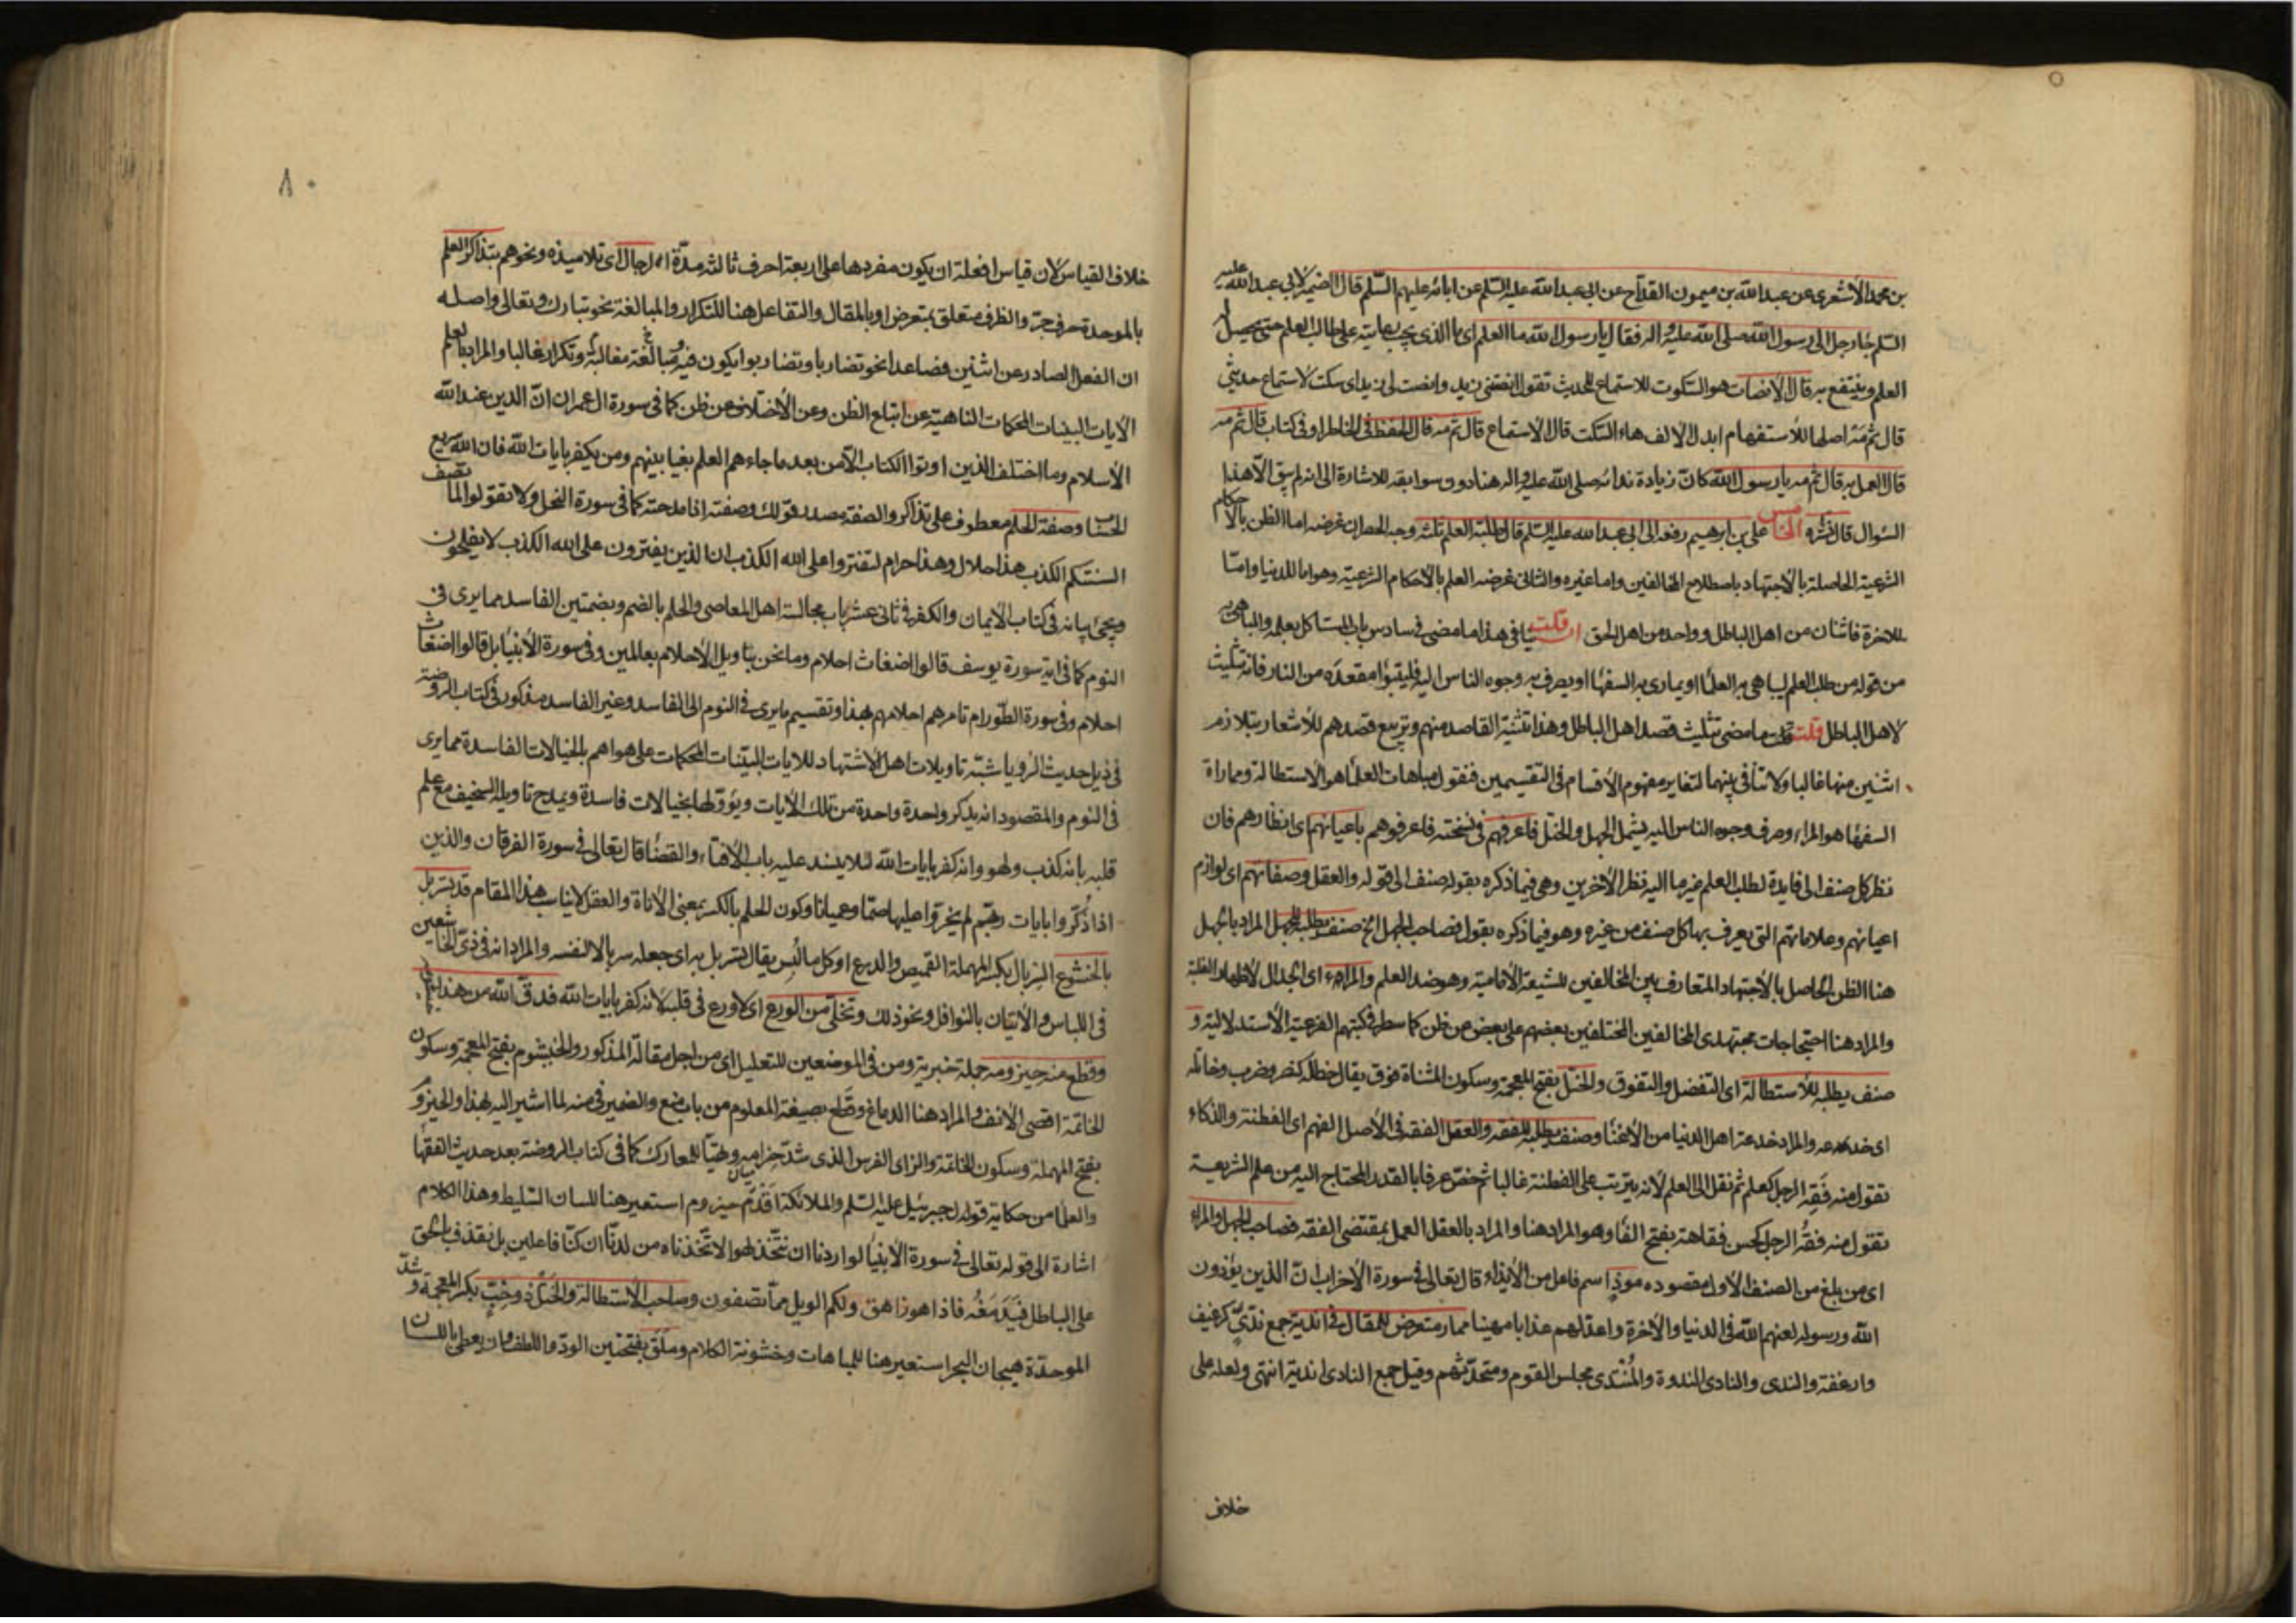 بن محمد الأشعري عن عبد الله بن ميمون القداح عن ابي عبد الله عليه السلم عن ابائه عليهم السلم قال الضمير لابي عبد الله عليه
السلم جاء رجل الى رسول الله صلى الله عليه واله فقال يا رسول الله ما العلم اى ما الذى يجب رعايته على طالب العلم حتى يحصل له
العلم وينتفع به قال الانصات هو السكوت للاستماع للحديث تقول انصتنى زيد وانصت لى زيد اى سكت لاستماع حديثى
قال ثم مه اصلها للاستفهام ابدل الالف هاء السكت قال الاستماع قال ثم مه قال الحفظ فى الخاطر او فى كتاب قال ثم مه
قال العمل به قال ثم مه يا رسول الله كان زيادة ندائه صلى الله عليه واله هنا دون سوابقه للاشارة الى انه لم يبق الا هذا
السؤال قال نشره الخامس علي بن ابرهيم رفعه الى ابي عبد الله عليه السلم قال طلبة العلم ثلثه وجه الحصر ان غرضه اما الظن بالاحكام
الشرعية الحاصلة بالاجتهاد باصطلاح المخالفين واما غيره والثانى غرضه العلم بالاحكام الشرعية وهو اما للدنيا واما
للاخرة فاثنان من اهل الباطل وواحد من اهل الحق ان قلت ينافى هذا ما مضى فى سادس باب المستاكل بعلمه والمباهى به
من قوله من طلب العلم ليباهى به العلماء او يمارى به السفهاء او يصرف به وجوه الناس اليه فليتبوأ مقعده من النار فانه تثليث
لاهل الباطل قلت ما مضى تثليث قصد اهل الباطل وهذا تثنية القاصد منهم وتربيع قصدهم للأشعار بتلازم
اثنين منها غالبا ولا تنافى بينهما لتغاير مفهوم الأقسام فى التقسيمين فنقول مباهات العلماء هو الاستطالة ومماراة
السفهاء هو المراء وصرف وجوه الناس اليه يشمل الجهل والختل فاعرفهم فى نسخته فاعرفوهم باعيانهم اى انظارهم فان
نظر كل صنف الى فايدة لطلب العلم غير ما اليه نظر الآخرين وهى فيما ذكره بقوله صنف الى قوله والعقل وصفاتهم اى لوازم
اعيانهم وعلاماتهم التى يعرف بها كل صنف من غيره وهو فيما ذكره بقوله فصاحب الجهل الخ صنف يطلبه للجهل المراد بالجهل
هنا الظن الحاصل بالاجتهاد المتعارف بين المخالفين للشيعة الامامية وهو ضد العلم والمراء اى الجدال لاظهار الغلبة
والمراد هنا احتجاجات مجتهدى المخالفين المختلفين بعضهم على بعض عن ظن كما سطر فى كتبهم الفرعية الأستدلالية و
صنف يطلبه للأستطالة اى التفضل والتفوق والختل بفتح المعجمة وسكون المثناة فوق يقال ختله كنصر وضرب وخاتله
اى خدعه والمراد خدعة اهل الدنيا من الأغنياء وصنف يطلبه للفقه والعقل الفقه فى الأصل الفهم اى الفطنة والذكاء
تقول منه فَقِه الرجل كعلم ثم نقل الى العلم لأنه يترتب على الفطنة غالبا ثم خص عرفا بالقدر المحتاج اليه من علم الشريعة
تقول منه فقُه الرجل كحسن فقاهة بفتح الفاء وهو المراد هنا والمراد بالعقل العمل بمقتضى الفقه فصاحب الجهل والمراء
اى من بلغ من الصنف الأول مقصوده موذٍ اسم فاعل من الأيذاء قال تعالى فى سورة الأحزاب ان الذين يؤذون
الله ورسوله لعنهم الله فى الدنيا والاخرة واعد لهم عذابا مهينا ممار متعرض للمقال فى اندية جمع ندىّ كرغيف
وارغفة والندى والنادى الندوة والمُنتدى مجلس القوم ومتحدثهم وقيل جمع النادى اندية انتهى ولعله على
خلاف
٨٠
خلاف القياس لان قياس افعلة ان يكون مفردها على اربعة احرف ثالثه مدّة الرجال اى تلاميذه ونحوهم بتذاكر العلم
بالموحدة حرف جر والظرف متعلق بمتعرض او بالمقال والتفاعل هنا للتكرار والمبالغة نحو تبارك وتعالى واصله
ان الفعل الصادر عن اثنين فصاعدا نحو تضاربا وتضاربوا يكون فيه مبالغة وتكرار غالبا والمراد بالعلم
الأيات البينات المحكمات الناهية عن اتباع الظن وعن الأختلاف عن ظن كما فى سورة ال عمران ان الدين عند الله
الأسلام وما اختلف الذين اوتوا الكتاب الا من بعد ما جاءهم العلم بغيا بينهم ومن يكفر بايات الله فان الله سريع
الحساب وصفة الحلم معطوف على تذاكر والصفة مصدر قولك وصفته اذا مدحته كما فى سورة النحل ولا تقولوا لما تصف
السنتكم الكذب هذا حلال وهذا حرام لتفتروا على الله الكذب ان الذين يفترون على الله الكذب لا يفلحون
ويجئ بيانه فى كتاب الأيمان والكفر فى ثانى عشر باب مجالسة اهل المعاصى والحلم بالضم وبضمتين الفاسد مما يرى فى
النوم كما فى اية سورة يوسف قالوا اضغاث احلام وما نحن بتاويل الأحلام بعالمين وفى سورة الأنبياء بل قالوا اضغاث
احلام وفى سورة الطور ام تامرهم احلامهم بهذا وتقسيم ما يرى فى النوم الى الفاسد وغير الفاسد مذكور فى كتاب الروضة
فى ذيل حديث الرؤيا شبّه تاويلات اهل الأشتهاد للايات البينات المحكمات على هواهم بالخيالات الفاسدة مما يرى
فى النوم والمقصود انه يذكر واحدة واحدة من تلك الأيات ويؤولها بخيالات فاسدة ويمدح تاويله السخيف مع علم
قلبه بانه كذب ولهو وانه كفر بايات الله لئلا ينسد عليه باب الأفتاء والقضاء قال تعالى فى سورة الفرقان والذين
اذا ذُكّروا بايات ربهم لم يخروا عليها صما وعميانا وكون الحلم بالكسر بمعنى الأناة والعقل لا يناسب هذا المقام قد تسربل
بالخشوع السربال بكسر المهملة القميص والدرع او كل ما لُبس يقال تسربل به اى جعله سربالا لنفسه والمراد انه فى زىّ الخاشعين
فى اللباس والأتيان بالنوافل ونحو ذلك وتخلّى من الورع اى لا ورع فى قلبه لانه كفر بايات الله فدق الله من هذا خيشومه
وقطع منه حيزومه جملة خبرية ومن فى الموضعين للتعليل اى من اجل مقالته المذكور والخيشوم بفتح المعجمة وسكون
الخاتمة اقصى الأنف والمراد هنا الدماغ وقطع بصيغة المعلوم من باب منع والضمير فى منه لما اشير اليه بهذا والحيزوم
بفتح المهملة وسكون الخاتمة والزاى الفرس الذى شدّ حزامه وهيّأ للمعارك كما فى كتاب الروضة بعد حديث الفقهاء
والعلماء من حكاية قول جبرئيل عليه السلم والملائكة اقدم حيزوم استعير هنا للسان السليط وهذا الكلام
اشارة الى قوله تعالى فى سورة الأنبياء لو اردنا ان نتخذ لهوا لاتخذناه من لدنا ان كنا فاعلين بل نقذف بالحق
على الباطل فيَدمَغُه فاذا هو زاهق ولكم الويل مما تصفون وصاحب الأستطالة والختل ذو خبّ بكسر المعجمة وشدّ
الموحدة هيجان البحر استعير هنا للمباهات وخشونة الكلام ومَلَق بفتحتين الودّ واللطف وان يعطى باللسان